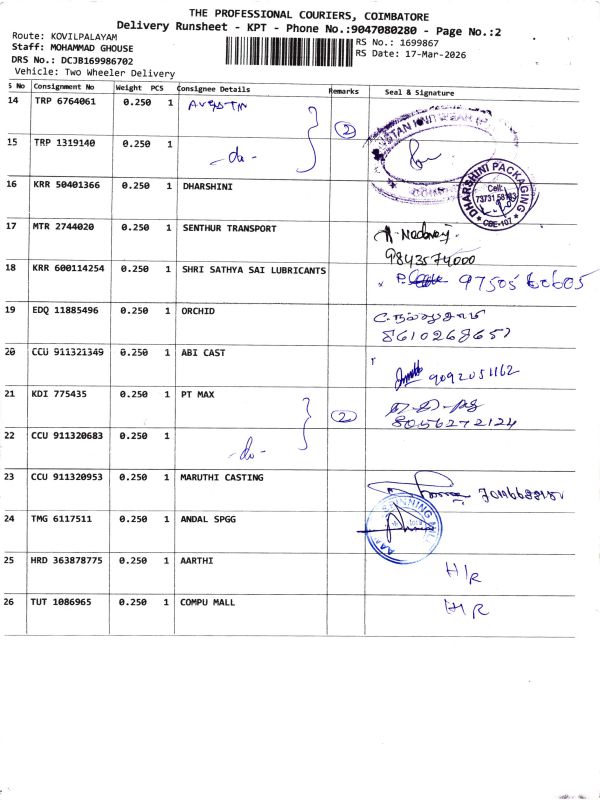 THE PROFESSIONAL COURIERS, COIMBATORE
Delivery Runsheet - KPT - Phone No.:9047080280 - Page No.:2
Route: KOVILPALAYAM
Staff: MOHAMMAD GHOUSE
DRS No.: DCJB169986702
Vehicle: Two Wheeler Delivery
RS No.: 1699867
RS Date: 17-Mar-2026
S No Consignment No Weight PCS Consignee Details Remarks Seal & Signature
14 TRP 6764061 0.250 1
2
15 TRP 1319140 0.250 1 -do-
16 KRR 50401366 0.250 1 DHARSHINI
DHARSHINI PACKAGING
Cell:
CBE-107
17 MTR 2744020 0.250 1 SENTHUR TRANSPORT
9843574000
18 KRR 600114254 0.250 1 SHRI SATHYA SAI LUBRICANTS
97505 60605
19 EDQ 11885496 0.250 1 ORCHID
8610268657
20 CCU 911321349 0.250 1 ABI CAST
9092051162
21 KDI 775435 0.250 1 PT MAX
2
8056272124
22 CCU 911320683 0.250 1 -do-
23 CCU 911320953 0.250 1 MARUTHI CASTING
24 TMG 6117511 0.250 1 ANDAL SPGG
SPINNING MILL
25 HRD 363878775 0.250 1 AARTHI H/R
26 TUT 1086965 0.250 1 COMPU MALL H/R